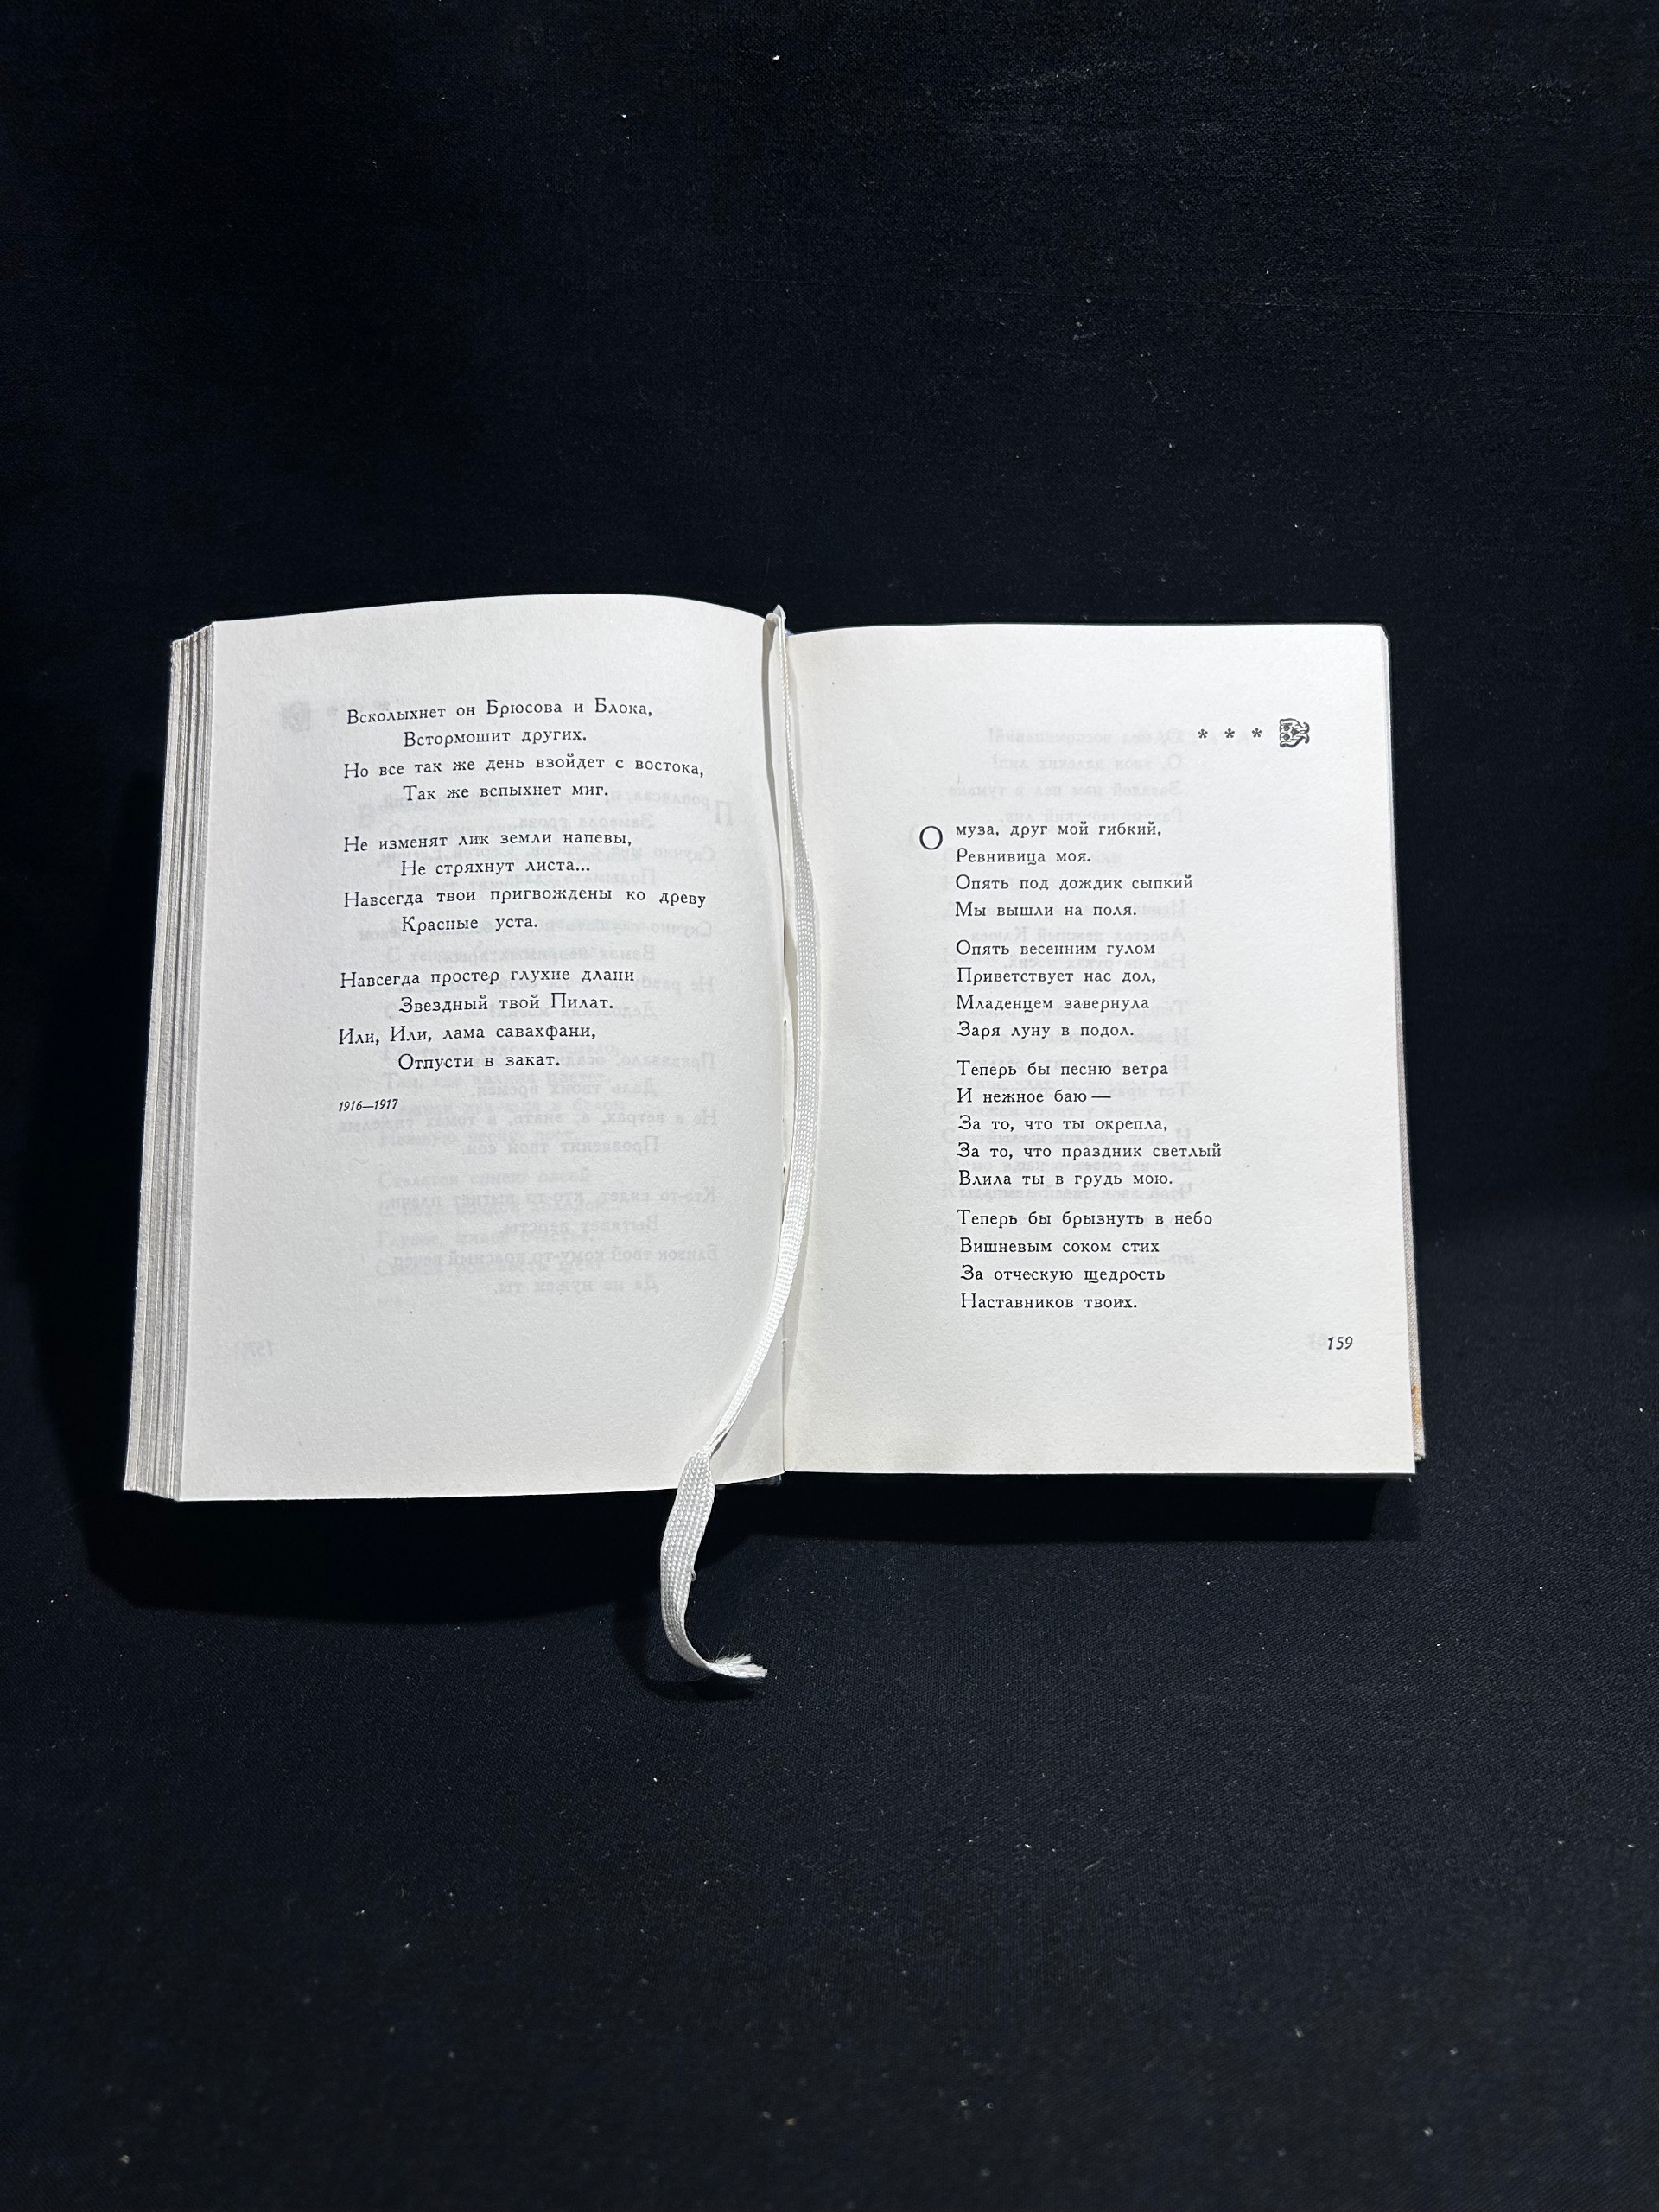 Всколыхнет он Брюсова и Блока,
Встормошит других.
Но все так же день взойдет с востока,
Так же вспыхнет миг.
Не изменят лик земли напевы,
Не стряхнут листа...
Навсегда твои пригвождены ко древу
Красные уста.
Навсегда простер глухие длани
Звездный твой Пилат.
Или, Или, лама савахфани,
Отпусти в закат.
1916—1917
* * *
О муза, друг мой гибкий,
Ревнивица моя.
Опять под дождик сыпкий
Мы вышли на поля.
Опять весенним гулом
Приветствует нас дол,
Младенцем завернула
Заря луну в подол.
Теперь бы песню ветра
И нежное баю —
За то, что ты окрепла,
За то, что праздник светлый
Влила ты в грудь мою.
Теперь бы брызнуть в небо
Вишневым соком стих
За отческую щедрость
Наставников твоих.
159